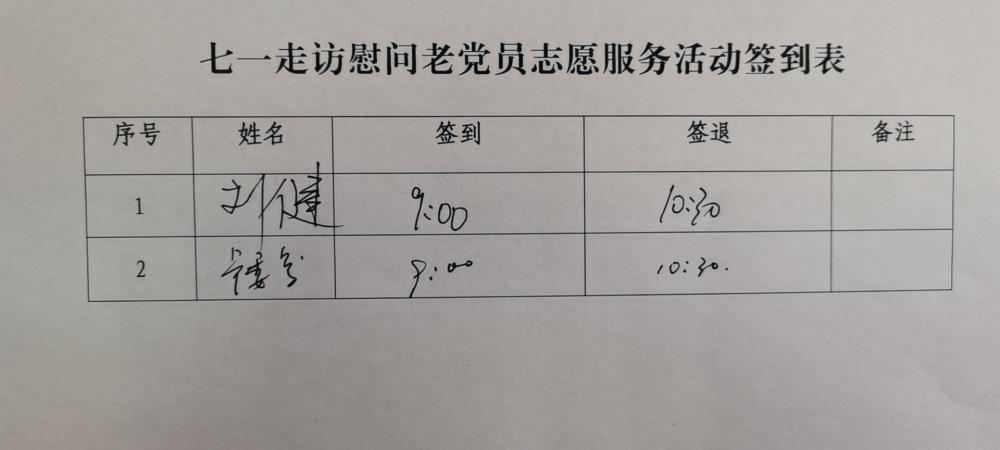 七一走访慰问老党员志愿服务活动签到表
序号 姓名 签到 签退 备注
1 刘健 9:00 10:30
2 9:00 10:30.